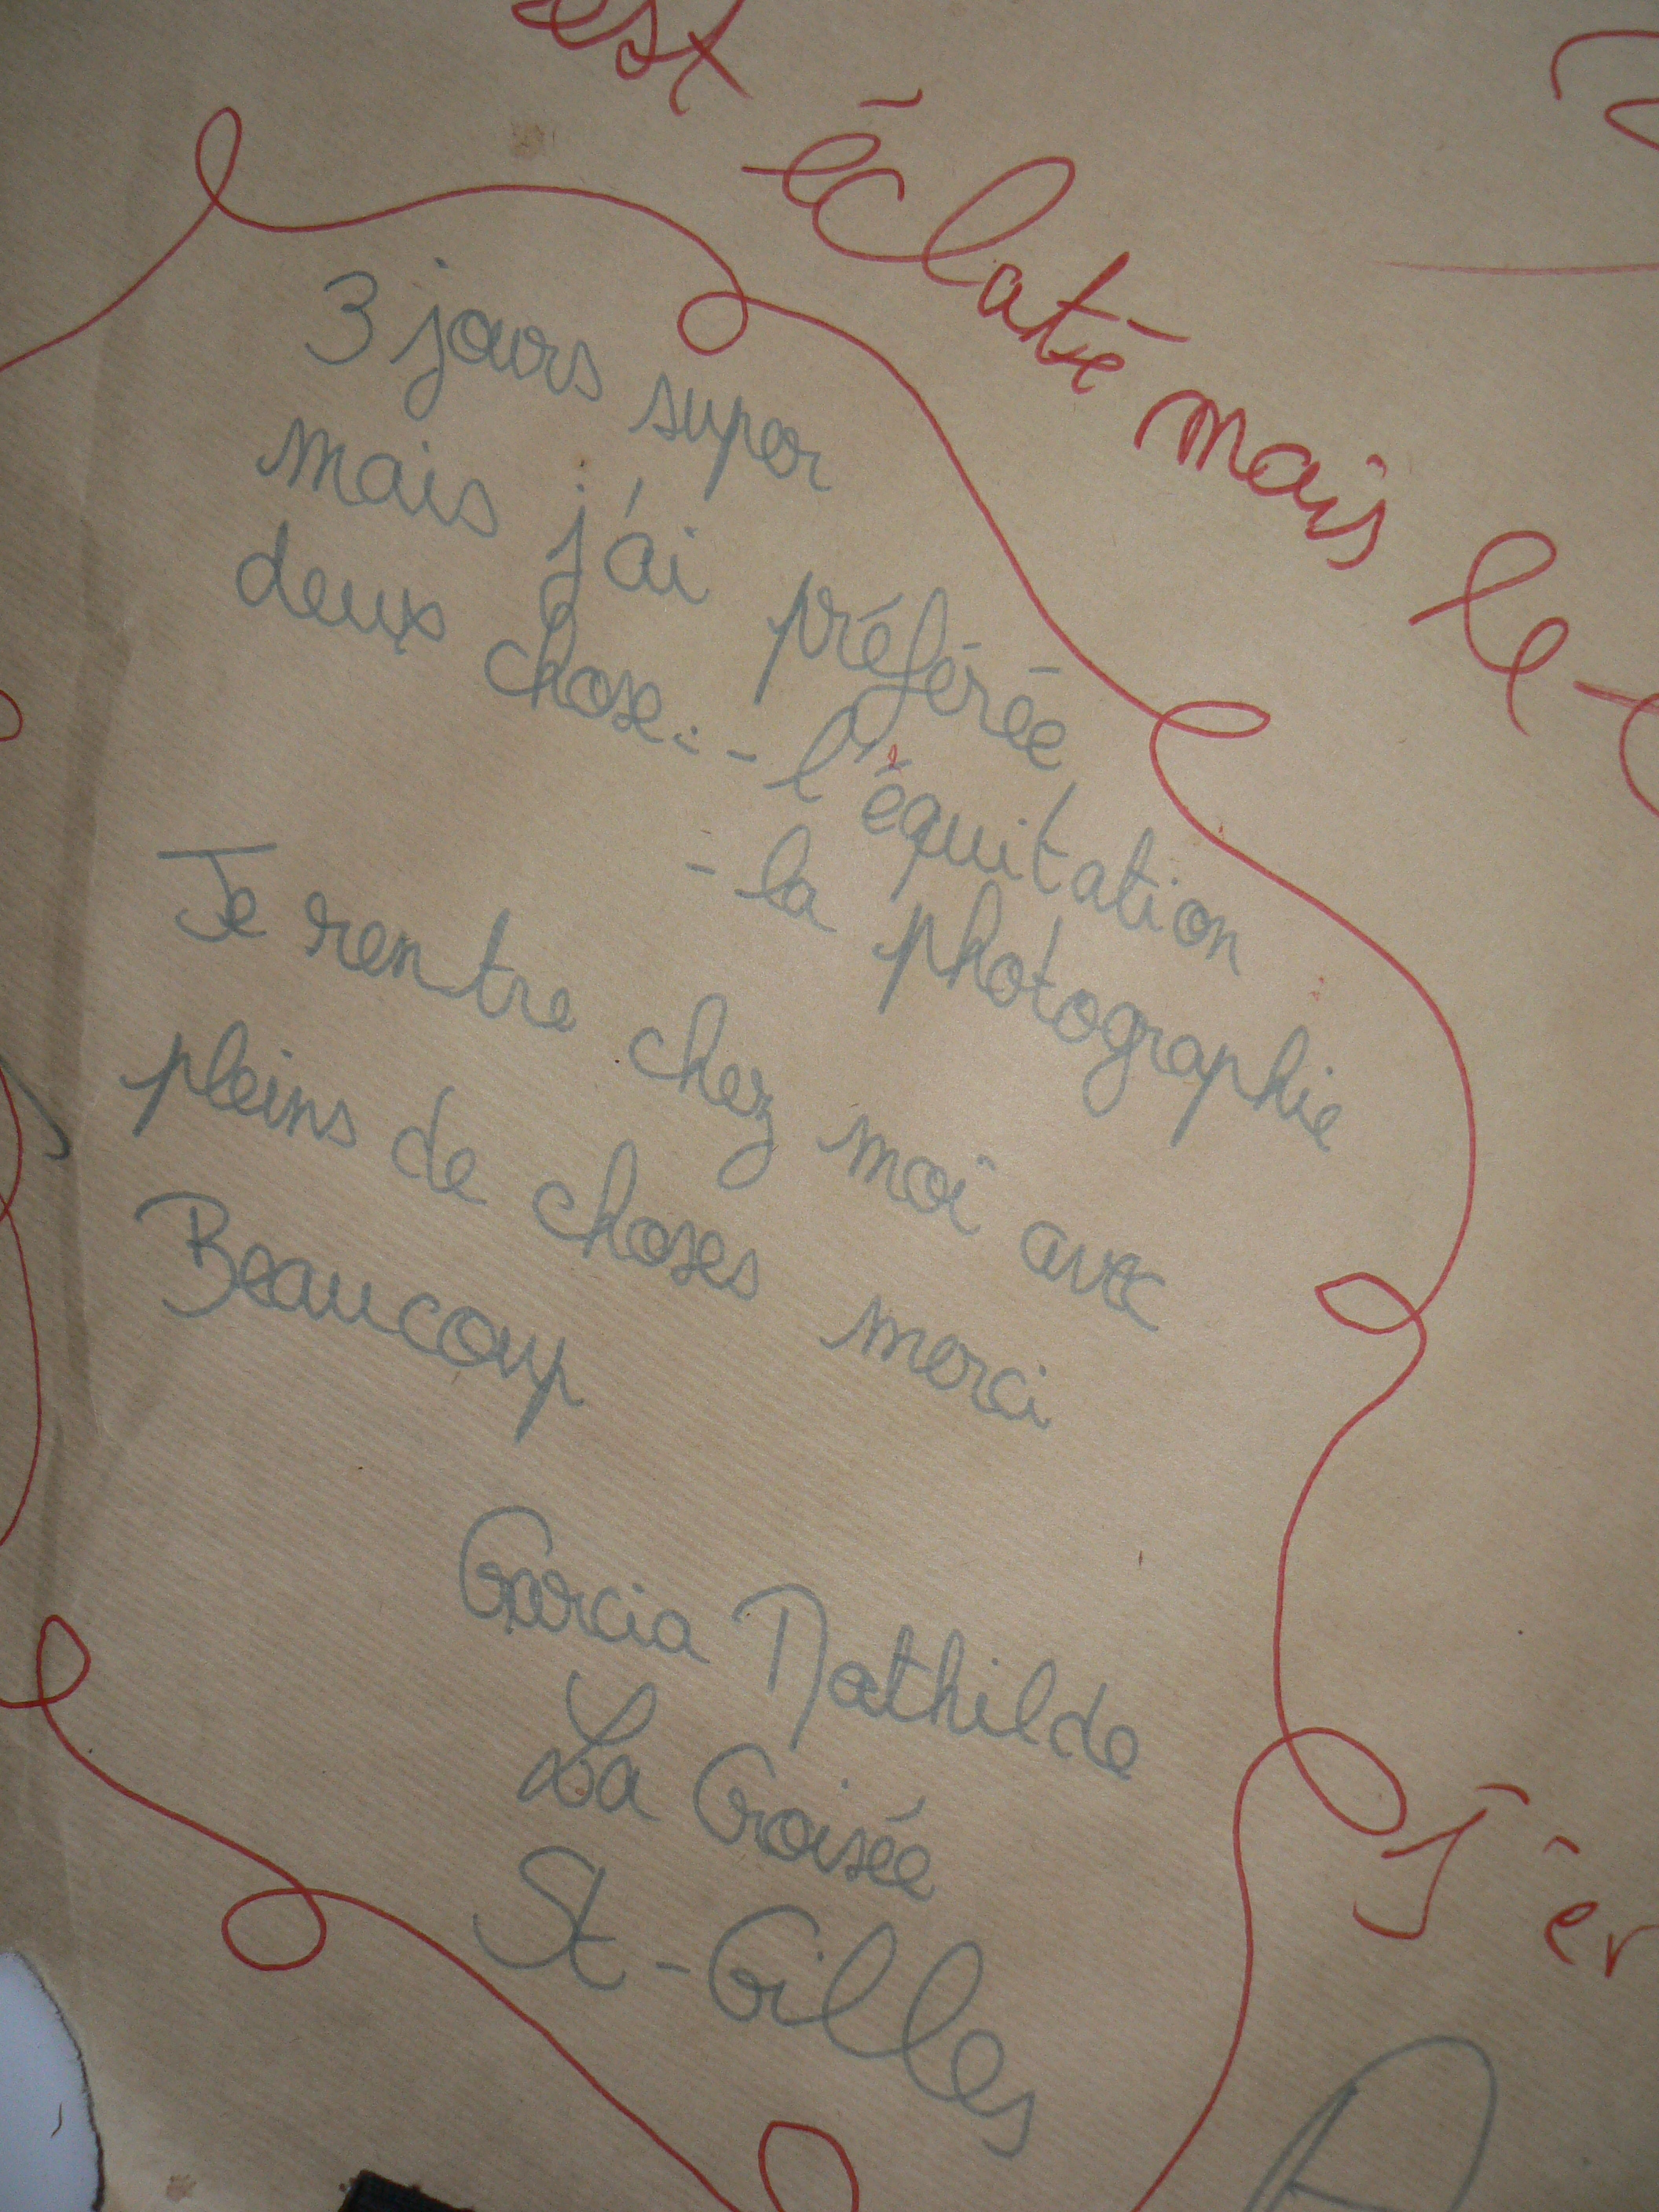 est éclaté mais le
3 jours super
mais j'ai préférée
deux chose: - l'équitation
- la photographie
Je rentre chez moi avec
pleins de choses merci
Beaucoup
Garcia Mathilde
La Croisée
St-Gilles
J'er